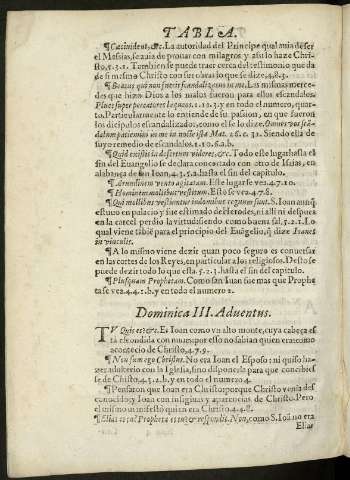 TABLA.
¶ Cæci vident, &c. La autoridad del Principe qual auia de ser
el Messias, se auia de prouar con milagros y assi lo haze Chri-
sto, 5.3.1. Tambien se puede traer cerca del testimonio que da
de si mismo Christo con sus obras lo que se dize, 4.8.3.
¶ Beatus qui non fuerit scandalizatus in me. Las mismas merce-
des que hizo Dios a los malos fueron para ellos escandalos.
Pluet super peccatores laqueos. 1.10.3. y en todo el numero, quar-
to. Particularmente lo entiende de su passion, en que fueron
los dicipulos escandalizados, como el se lo dize. Omnes vos scã-
dalum patiemini in me in nocte ista Mat. 26. c. 31. Siendo ella de
suyo remedio de escandalos. 1.10.6.a.b.
¶ Quid existis in desertum videre, &c. Todo este lugar hasta el
fin del Euangelio se declara concertado con otro de Isaias, en
alabança de san Ioan, 4.3.5.a. hasta el fin del capitulo.
¶ Arundinem vento agitatam. Este lugar se vea. 4.7.10.
¶ Hominem mollibus vestitum. Esto se vea. 4.7.8.
¶ Qui mollibus vestiuntur in domibus regum sunt. S. Ioan aunq̃
estuuo en palacio y fue estimado de Herodes, ni alli ni despues
en la carcel perdio la virtud siendo como buena sal, 5.2.1. Lo
qual viene tãbiẽ para el principio del Euãgelio, q̃ dize Ioanes
in vinculis.
¶ A lo mismo viene dezir quan poco seguro es conuersar
en las cortes de los Reyes, en particular a los religiosos. Desto se
puede dezir todo lo que esta. 5.2.3. hasta el fin del capitulo.
¶ Plusquam Prophetam. Como san Iuan fue mas que Prophe
ta se vea. 4.4.1.b. y en todo el numero 2.
Dominica III. Aduentus.
TV Quis es? &c. Es Ioan como vn alto monte, cuya cabeça es
tà escondida con nuues por esso no sabian quien era como
acontecio de Christo, 4.7.9.
¶ Non sum ego Christus. No era Ioan el Esposo: ni quiso ha-
zer adulterio con la Iglesia, sino disponerla para que concibies
se de Christo, 4.5.2.b, y en todo el numero 4.
¶ Pensaron que Ioan era Christo porque Christo venia des
conocido, y Ioan con insignias y aparencias de Christo. Pero
el mismo manifestò quien era Christo. 4.4.8.
¶ Elias es tu? Propheta es tu? & respondit. Non, como S. Ioã no era
Elias